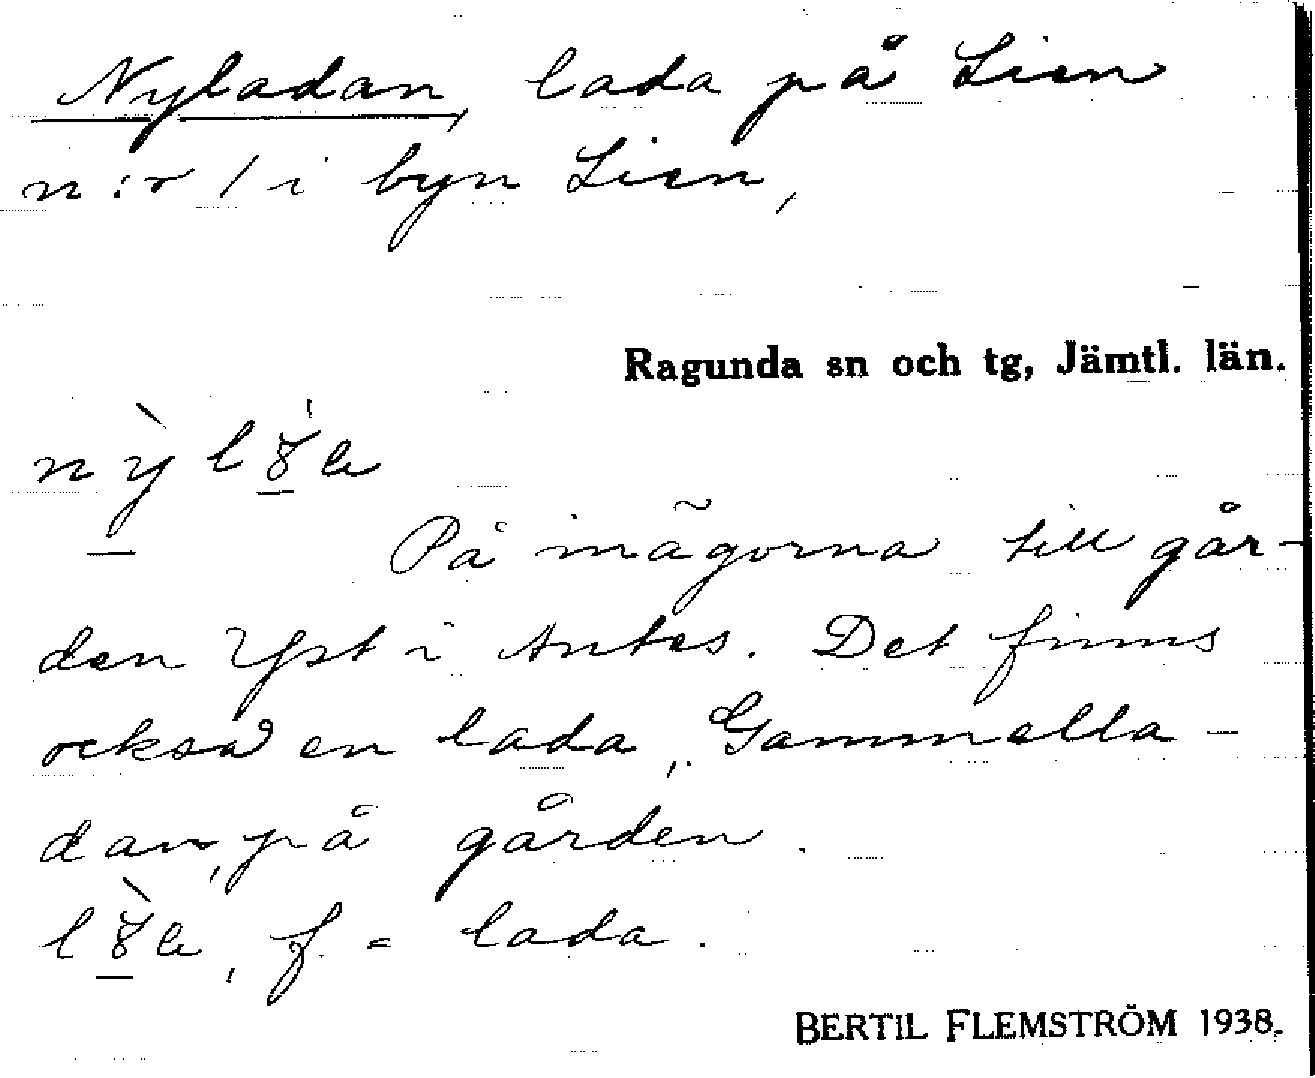 Nyladan, lada på Lien
n:r 1 i byn Lien,
Ragunda sn och tg, Jämtl. län.
På inägorna till går-
den Yst i Antes. Det finns
också en lada, Gammella-
dan, på gården.
f = lada.
BERTIL FLEMSTRÖM 1938.